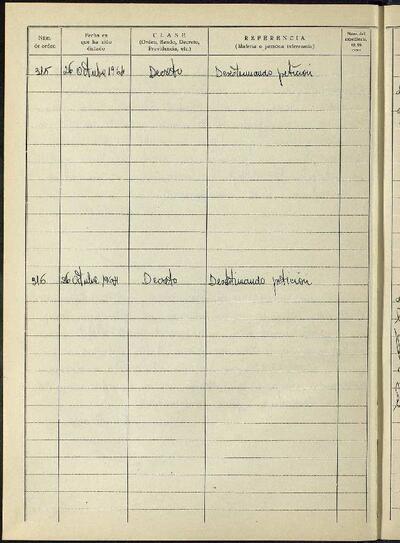 Núm. de orden
Fecha en que ha sido dictado
CLASE
(Orden, Bando, Decreto, Providencia, etc.)
REFERENCIA
(Materia o persona interesada)
Núm. del expediente,
315 26 Octubre 1964 Decreto Desestimando petición
316 26 Octubre 1964 Decreto Desestimando petición